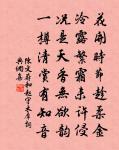 花開時節趁柔金
泠露繁霜未許侵
況是天香無欲韻
一樽清賞有知音
陳文蔚和趙守木犀